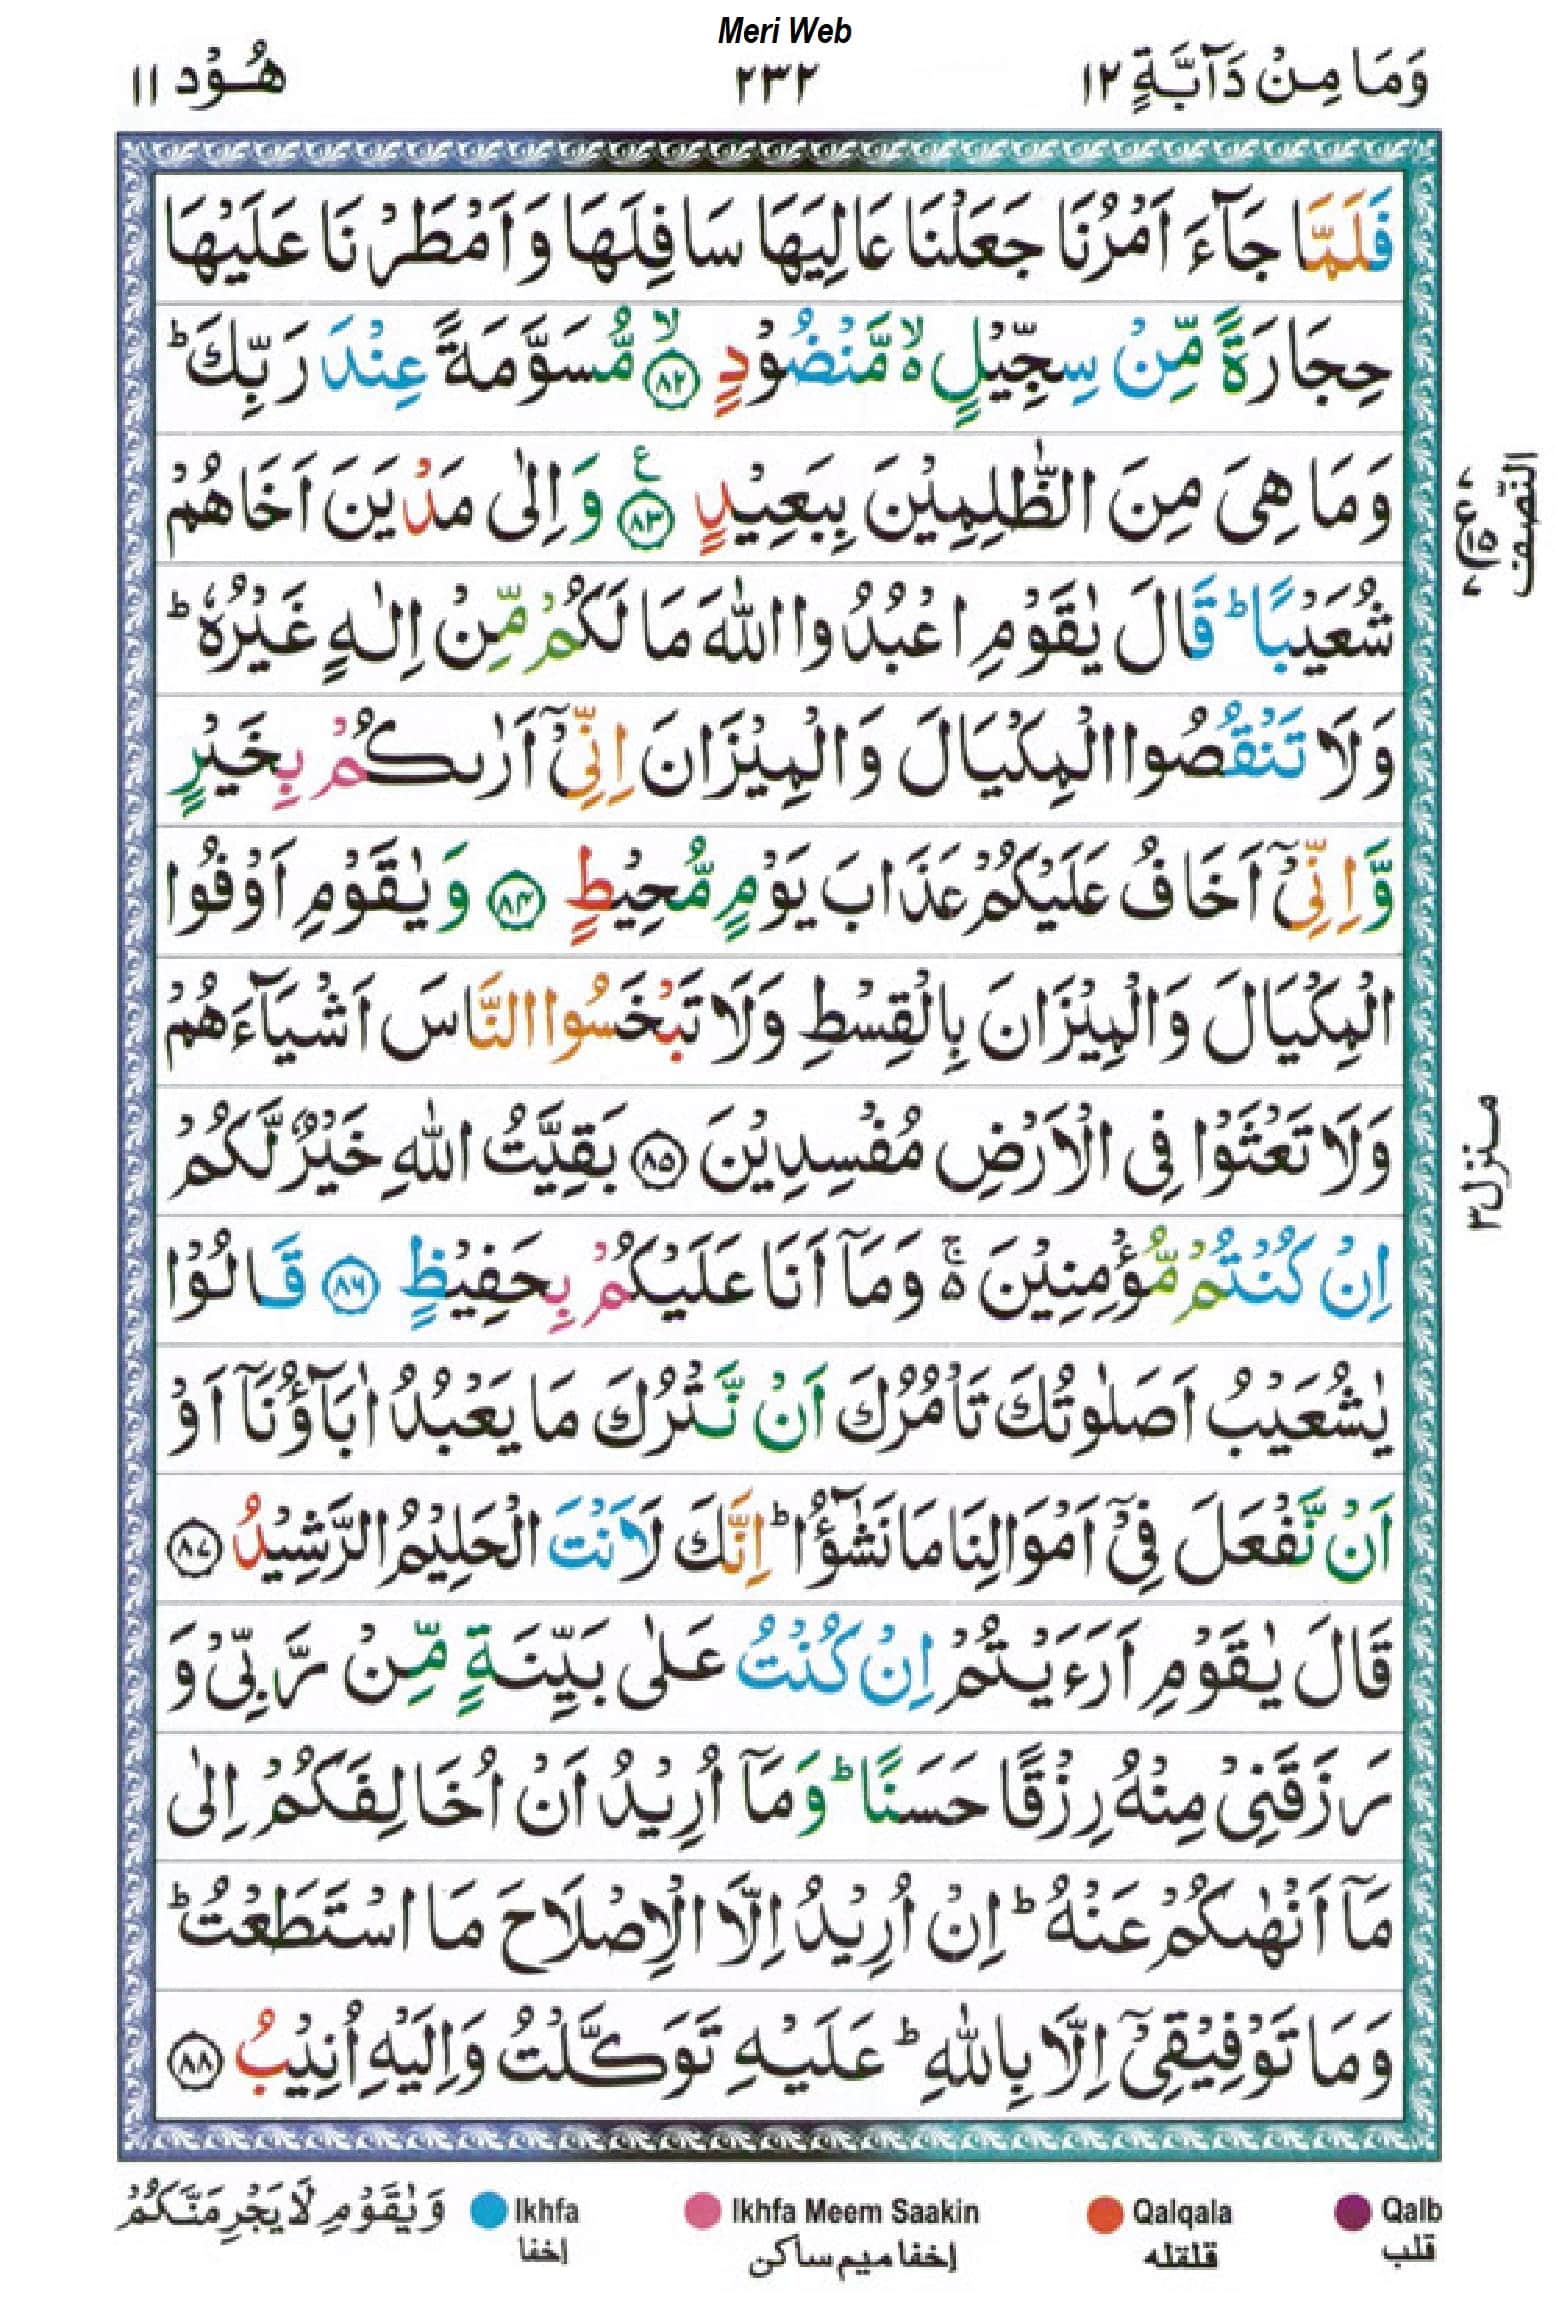 Meri Web
وَمَا مِنْ دَآبَّةٍ ١٢
٢٣٢
هُوْد ١١
فَلَمَّا جَآءَ اَمْرُنَا جَعَلْنَا عَالِيَهَا سَافِلَهَا وَاَمْطَرْنَا عَلَيْهَا
حِجَارَةً مِّنْ سِجِّيْلٍ ۙ مَّنْضُوْدٍ ۙ‏﴿۸۲﴾ مُّسَوَّمَةً عِنْدَ رَبِّكَ ؕ
وَمَا هِىَ مِنَ الظّٰلِمِيْنَ بِبَعِيْدٍ ﴿۸۳﴾ ع وَاِلٰى مَدْيَنَ اَخَاهُمْ
شُعَيْبًا ؕ قَالَ يٰقَوْمِ اعْبُدُوا اللّٰهَ مَا لَكُمْ مِّنْ اِلٰهٍ غَيْرُهٗ ؕ
وَلَا تَنْقُصُوا الْمِكْيَالَ وَالْمِيْزَانَ اِنِّىْۤ اَرٰٮكُمْ بِخَيْرٍ
وَّاِنِّىْۤ اَخَافُ عَلَيْكُمْ عَذَابَ يَوْمٍ مُّحِيْطٍ ﴿۸۴﴾ وَيٰقَوْمِ اَوْفُوا
الْمِكْيَالَ وَالْمِيْزَانَ بِالْقِسْطِ وَلَا تَبْخَسُوا النَّاسَ اَشْيَآءَهُمْ
وَلَا تَعْثَوْا فِى الْاَرْضِ مُفْسِدِيْنَ ﴿۸۵﴾ بَقِيَّتُ اللّٰهِ خَيْرٌ لَّكُمْ
اِنْ كُنْتُمْ مُّؤْمِنِيْنَ ۚ۬ وَمَاۤ اَنَا عَلَيْكُمْ بِحَفِيْظٍ ﴿۸۶﴾ قَالُوْا
يٰشُعَيْبُ اَصَلٰوتُكَ تَاْمُرُكَ اَنْ نَّتْرُكَ مَا يَعْبُدُ اٰبَآؤُنَاۤ اَوْ
اَنْ نَّفْعَلَ فِىْۤ اَمْوَالِنَا مَا نَشٰٓؤُا ؕ اِنَّكَ لَاَنْتَ الْحَلِيْمُ الرَّشِيْدُ ﴿۸۷﴾
قَالَ يٰقَوْمِ اَرَءَيْتُمْ اِنْ كُنْتُ عَلٰى بَيِّنَةٍ مِّنْ رَّبِّىْ وَ
رَزَقَنِىْ مِنْهُ رِزْقًا حَسَنًا ؕ وَمَاۤ اُرِيْدُ اَنْ اُخَالِفَكُمْ اِلٰى
مَاۤ اَنْهٰٮكُمْ عَنْهُ ؕ اِنْ اُرِيْدُ اِلَّا الْاِصْلَاحَ مَا اسْتَطَعْتُ ؕ
وَمَا تَوْفِيْقِىْۤ اِلَّا بِاللّٰهِ ؕ عَلَيْهِ تَوَكَّلْتُ وَاِلَيْهِ اُنِيْبُ ﴿۸۸﴾
النّصف
منزل٣
وَيٰقَوْمِ لَا يَجْرِمَنَّكُمْ
Ikhfa
إخفا
Ikhfa Meem Saakin
إخفا ميم ساكن
Qalqala
قلقله
Qalb
قلب